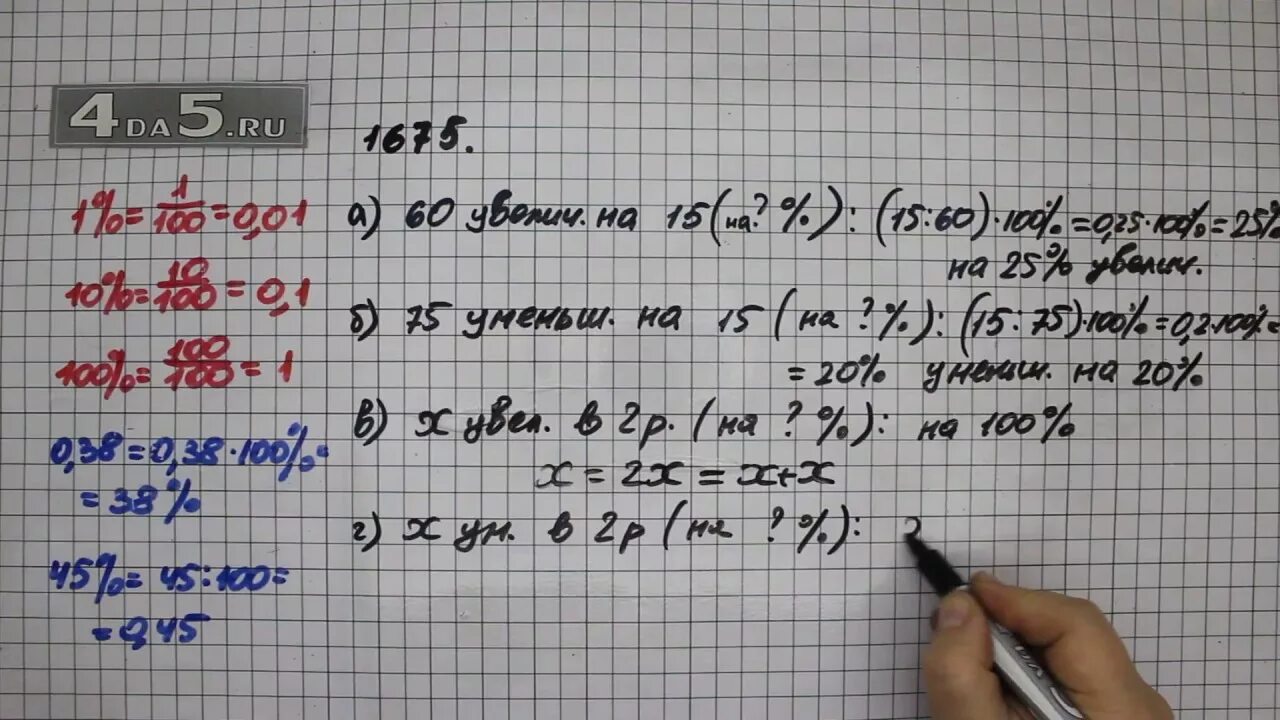 4DA5.RU
1675.
1% = 1/100 = 0,01
10% = 10/100 = 0,1
100% = 100/100 = 1
0,38 = 0,38·100% =
= 38%
45% = 45:100 =
= 0,45
а) 60 увелич. на 15 (на ? %): (15:60)·100% = 0,25·100% = 25%
на 25% увелич.
б) 75 уменьш. на 15 (на ? %): (15:75)·100% = 0,2·100% =
= 20% уменьш. на 20%
в) x увел. в 2р. (на ? %): на 100%
x = 2x = x+x
г) x ум. в 2р (на ? %):